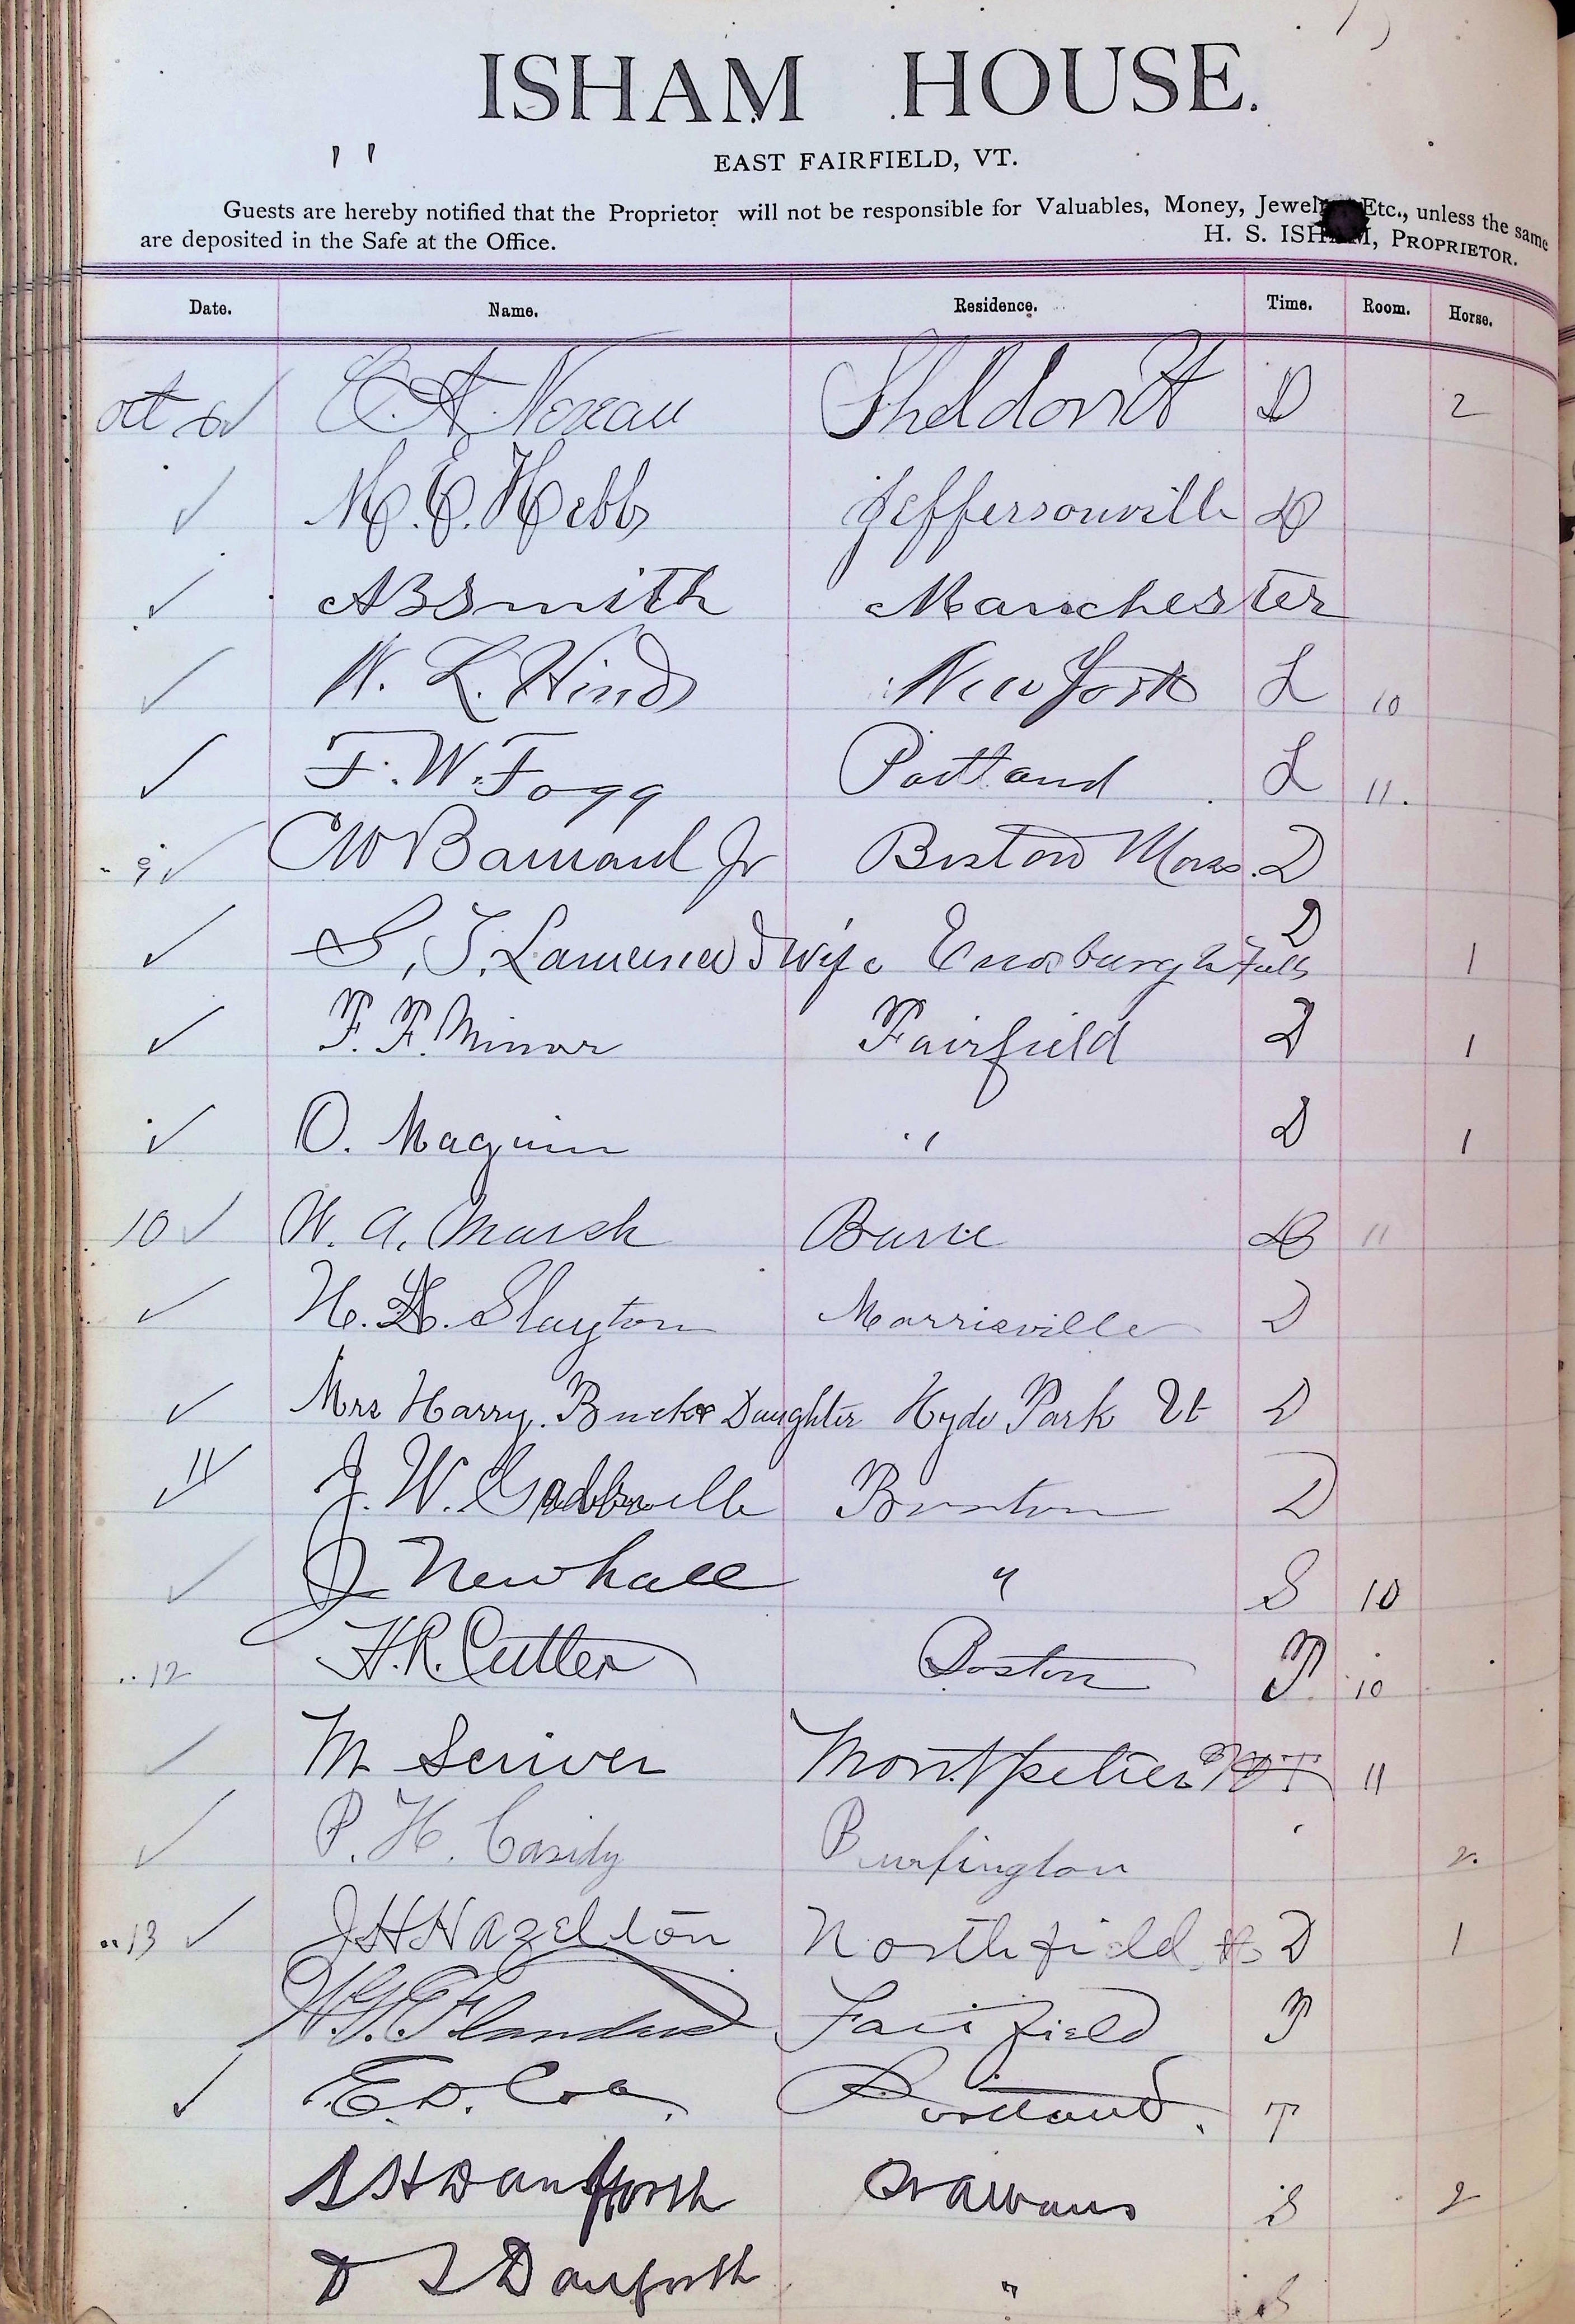 ISHAM HOUSE.
EAST FAIRFIELD, VT.
Guests are hereby notified that the Proprietor will not be responsible for Valuables, Money, Etc., unless the same
are deposited in the Safe at the Office.
H. S. ISHAM, PROPRIETOR.
Date. Name. Residence. Time. Room. Horse.
Oct Sheldon Vt D 2
M. C. Hebb Jeffersonville D
A B Smith Manchester
W. L. Hinds New York L 10
F. W. Fogg Portland L 11.
9 C W Barnard Jr Boston Mass. D
S, J, Lawrence & Wife Enosburgh Falls D 1
F. F. Minor Fairfield D 1
O. Maguin " D 1
10 W. A. Marsh Barre 11
H. Slayton Morrisville D
Mrs Harry. Buck & Daughter Hyde Park Vt D
11 J. W. Boston D
J Newhall " S 10
12 H. R. Cutter Boston P 10
M Scriver Montpelier Vt T 11
P. H. Casidy Burlington 2.
13 J H Hazelton Northfield D 1
Flanders Fairfield P
E. D. Coe. Portland. T
S H Danforth St Albans S 2
D S Danforth " S